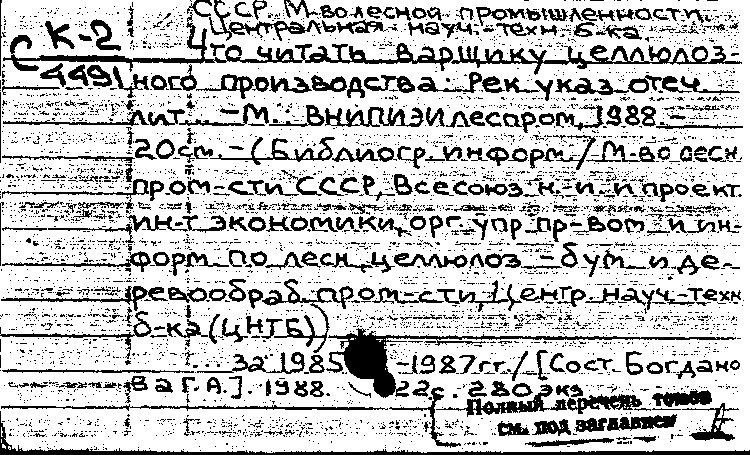 СССР. М-во лесной промышленности.
Центральная науч.-техн. б-ка.
С К-2 Что читать варщику целлюлоз-
4491 ного производства: Рек указ отеч
лит... – М.: ВНИПИЭИлеспром, 1988. –
20см. – (Библиогр. информ. / М-во лесн
пром-сти СССР, Всесоюз. н.-и. и проект.
ин-т экономики, орг. упр пр-вом и ин-
форм по лесн, целлюлоз – бум. и де-
ревообраб. пром-сти, Центр. науч.-техн
б-ка (ЦНТБ))
... за 1985 – 1987гг. / [Сост. Богдано
ва Г.А.]. 1988. 22с. 280 экз
Полный перечень томов
см. под заглавием